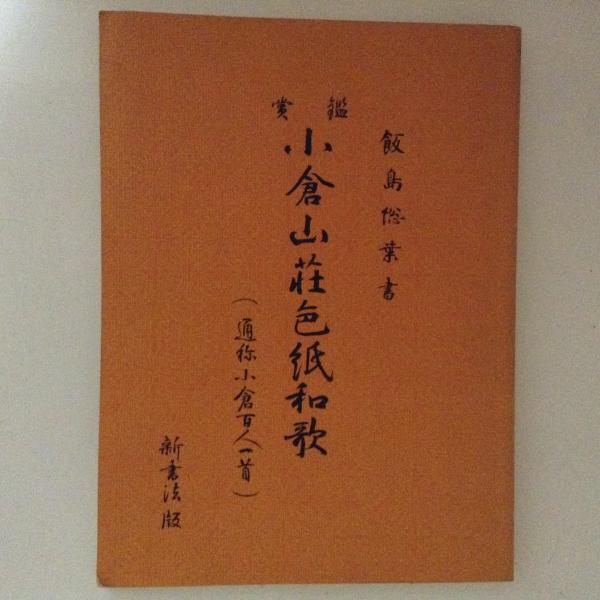 飯島偬葉書
鑑賞
小倉山荘色紙和歌
(通称小倉百人一首)
新書法版